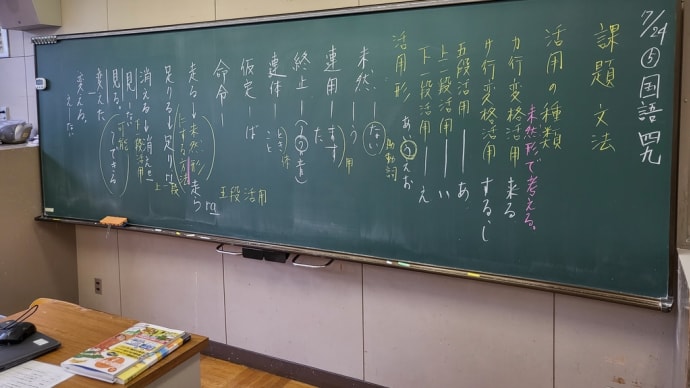 7/24 ⑤ 国語 四九
課題 文法
活用の種類
未然形で考える。
カ行変格活用 来る
サ行変格活用 する。し
五段活用 ― あ
上一段活用 ― い
下一段活用 ― え
あいうえお
活用形
助動詞
未然 ― ない
う
連用 ― ます
た
用
終止 ― (うの音)
連体 ― とき、体
こと
仮定 ― ば
命令 ―
走る→未然形
にする方法
走らra
五段活用
足りる→足りri
上一段
消える→消えe
下一段活用
見 ― ない
見る。
可能
― できる
変えた
変える。
え ― ない